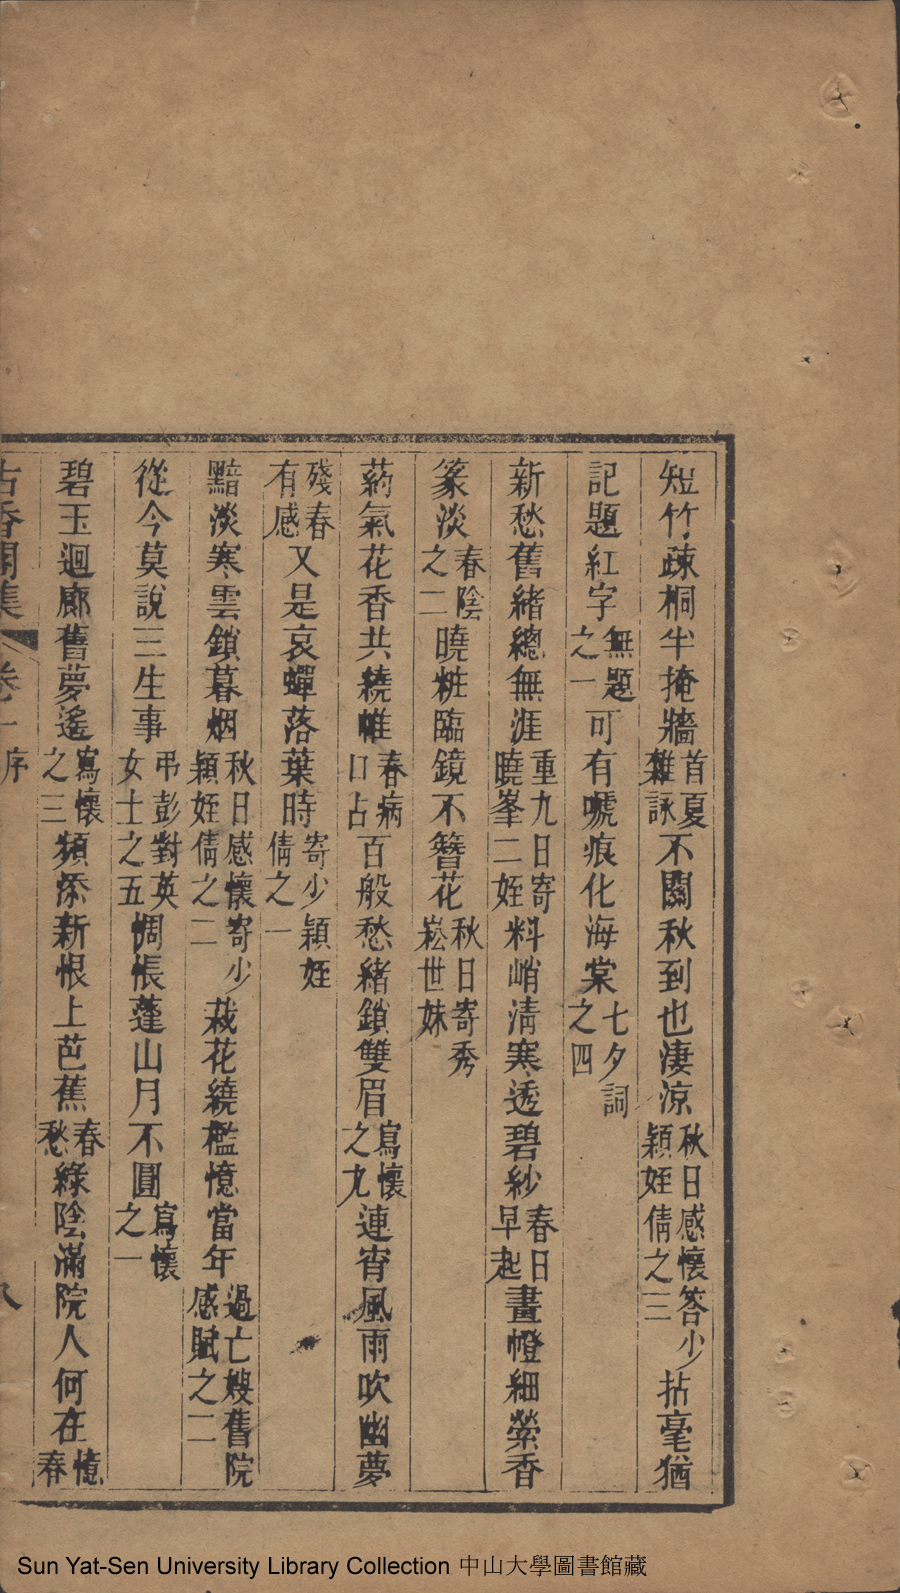 短竹疎桐半掩牆首夏雜詠不關秋到也淒凉秋日感懷答少穎姪倩之三拈毫猶
記題紅字無題之一可有啼痕化海棠七夕詞之四
新愁舊緒總無涯重九日寄曉峯二姪料峭清寒透碧紗春日早起畫幨細縈香
篆淡春陰之二曉粧臨鏡不簪花秋日寄秀崧世妹
葯氣花香共繞帷春病口占百般愁緒鎖雙眉寫懷之九連宵風雨吹幽夢
殘春有感又是哀蟬落葉時寄少穎姪倩之一
黯淡寒雲鎖暮烟秋日感懷寄少穎姪倩之二栽花繞檻憶當年過亡嫂舊院感賦之二
從今莫說三生事弔彭對英女士之五惆悵蓬山月不圓寫懷之一
碧玉迴廊舊夢遙寫懷之三頻添新恨上芭蕉春愁綠陰滿院人何在憶春
古香閣集 卷一 序 八
Sun Yat-Sen University Library Collection 中山大學圖書館藏